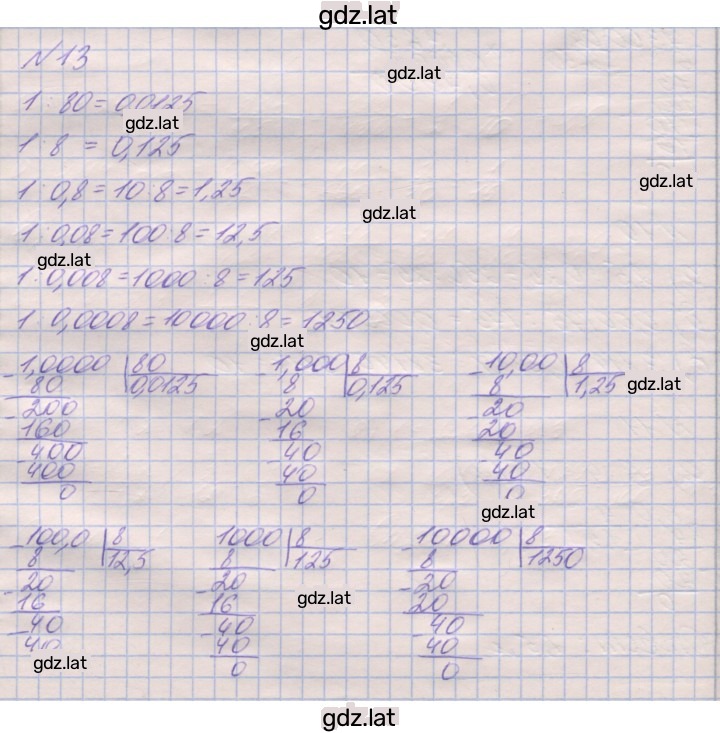 gdz.lat
№13
gdz.lat
1 : 80 = 0,0125
gdz.lat
1 : 8 = 0,125
gdz.lat
1 : 0,8 = 10 : 8 = 1,25
gdz.lat
1 : 0,08 = 100 : 8 = 12,5
gdz.lat
1 : 0,008 = 1000 : 8 = 125
1 : 0,0008 = 10000 : 8 = 1250
gdz.lat
- 1,0000 | 80 - 1,000 | 8 - 10,00 | 8
80 0,0125 8 0,125 8 1,25 gdz.lat
- 200 - 20 - 20
160 16 20
- 400 - 40 - 40
400 40 40
0 0 0
gdz.lat
- 100,0 | 8 1000 | 8 - 10000 | 8
8 12,5 8 125 8 1250
- 20 - 20 - 20
16 16 20
gdz.lat
- 40 - 40 - 40
40 40 40
gdz.lat
0 0
gdz.lat